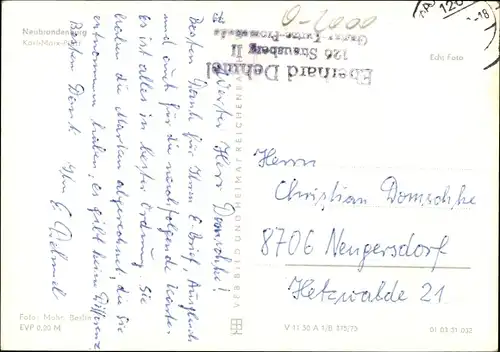 Neubrandenburg
Karl-Marx-Platz
Echt Foto
Eberhard Dehmel
126 Strausberg II
Werter Herr Domschke!
Besten Dank für Ihren E-Brief, Ausgleich
und auch für die nachfolgende Karten
Es ist alles in bester Ordnung. Sie
haben die Marken abgerechnet, die Sie
entnommen haben, es gibt keine Differenz
Besten Dank Ihr E. Dehmel
VERBILD UND HEIMAT REICHENBACH
Herrn
Christian Domschke
8706 Neugersdorf
Hetzwalde 21
Foto: Mohr, Berlin
EVP 0,20 M
V 11 50 A 1/B 315/73
01 03 51 032